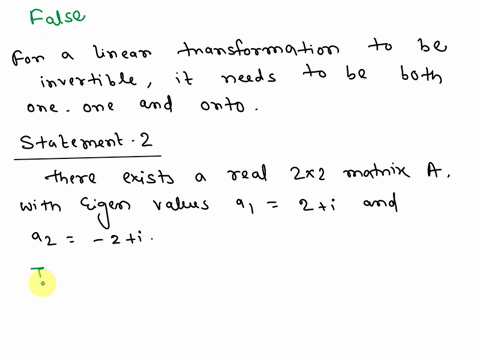 False
For a linear transformation to be
invertible, it needs to be both
one-one and onto.
Statement-2
There exists a real 2×2 matrix A,
with Eigen values a₁ = 2+i and
a₂ = -2+i.
T